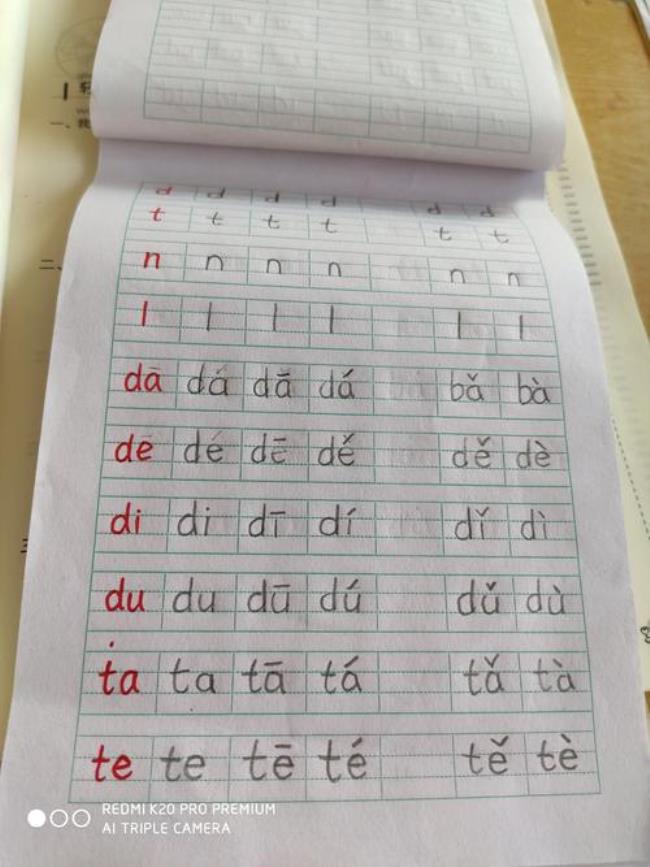 d d d d d d
t t t t t t
n n n n n n
l l l l l l
dā dá dā dá bǎ bà
dē dé dē dě dě dè
di di dī dí dǐ dì
du du dū dú dǔ dù
ta ta tā tá tǎ tà
te te tē té tě tè
REDMI K20 PRO PREMIUM
AI TRIPLE CAMERA